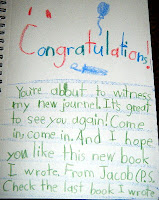 Congratulations!
You're about to witness
my new journel. It's great
to see you again! Come
in, come in. And I hope
you like this new book
I wrote. From Jacob (P.S.
Check the last book I wrote